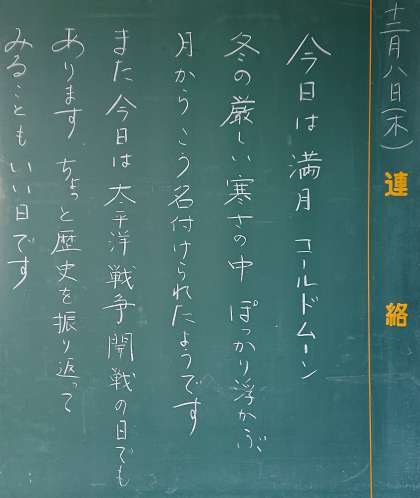 十二月八日(木)
連絡
今日は満月 コールドムーン
冬の厳しい寒さの中 ぽっかり浮かぶ
月からこう名付けられたようです
また今日は太平洋戦争開戦の日でも
あります ちょっと歴史を振り返って
みることもいい日です